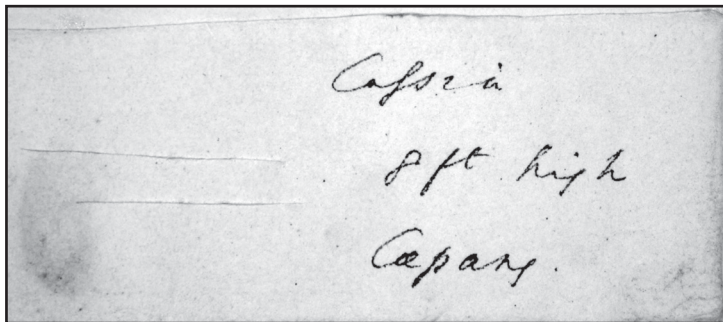 Cassia
8 ft high
Cœpang.